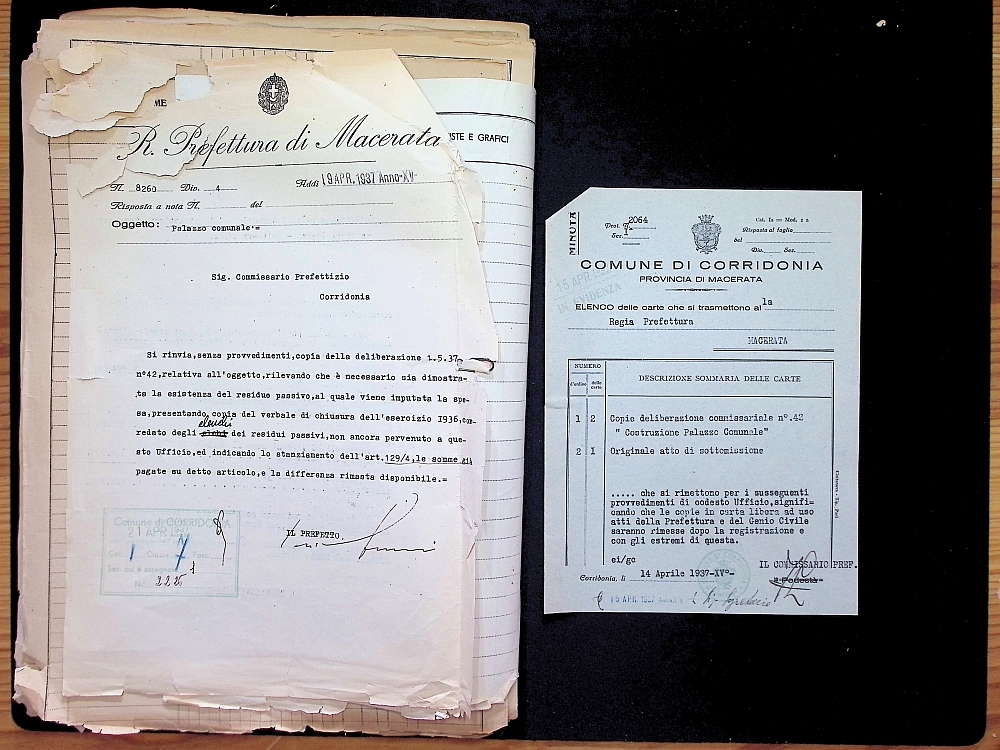 ME
ISTE E GRAFICI
R. Prefettura di Macerata
N. 8260 Div. 4 Addì 19 APR. 1937 Anno-XV-
Risposta a nota N. del
Oggetto: Palazzo comunale.=
Sig. Commissario Prefettizio
Corridonia
Si rinvia,senza provvedimenti,copia della deliberazione 1.5.37
n°42,relativa all'oggetto,rilevando che è necessario sia dimostra-
ta la esistenza del residuo passivo,al quale viene imputata la spe-
sa,presentando copia del verbale di chiusura dell'esercizio I936,cor-
elenchi
redato degli dei residui passivi,non ancora pervenuto a que-
sto Ufficio,ed indicando lo stanziamento dell'art.129/4,le somme già
pagate su detto articolo,e la differenza rimasta disponibile.=
IL PREFETTO
Comune di CORRIDONIA
21 APR.
Cat. 1 Classe Fasc.
N. 2225
MINUTA
Prot. N. 2064
Sez. I
Cat. Ia — Mod. 2 a
Risposta al foglio
del
Div. Sez.
COMUNE DI CORRIDONIA
PROVINCIA DI MACERATA
15 APR
IN EVIDENZA
ELENCO delle carte che si trasmettono al la
Regia Prefettura
MACERATA
NUMERO
d'ordine delle carte DESCRIZIONE SOMMARIA DELLE CARTE
1 2 Copie deliberazione commissariale n°.42
" Costruzione Palazzo Comunale"
2 I Originale atto di sottomissione
..... che si rimettono per i susseguenti
provvedimenti di codesto Ufficio,signifi-
cando che le copie in carta libera ad uso
atti della Prefettura e del Genio Civile
saranno rimesse dopo la registrazione e
con gli estremi di questa.
ei/gc
IL COMMISSARIO PREF.
Corridonia, li 14 Aprile 1937-XV°-
Il Podestà
15 APR. 1937
Il Segretario